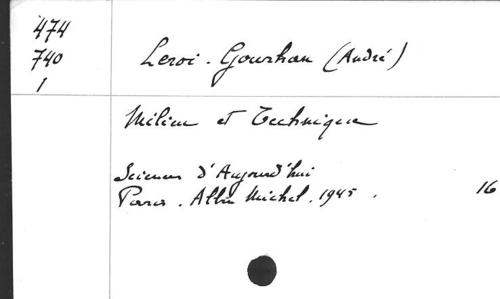 474
740
1
Leroi-Gourhan (André)
Milieu et Technique
Sciences d'Aujourd'hui
Paris. Albin Michel. 1945. 16